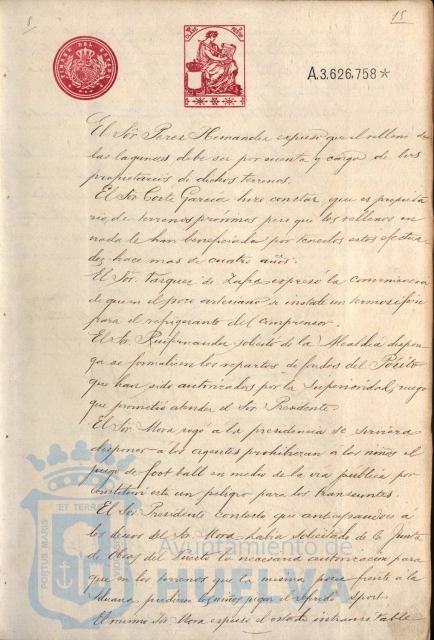 15
TIMBRE DEL ESTADO
A.3.626,758*
El Sr Perez Hernandez expuso que el relleno de
las lagunas debe ser por cuenta y cargo de los
propietarios de dichos terrenos.
El Sr Corte Garcia hizo constar que es propieta
rio de terrenos proximos pero que los rellenos en
nada le han beneficiado por tenerlos estos efectua
dos hace mas de cuatro años.
El Sr. Vazquez de Zafra expresó la conveniencia
de que en el pozo artesiano se instale un termosifón
para el refrigerante del compresor.
El Sr. Ruifernandez solicito de la Alcaldia dispon
ga se formalicen los repartos de fondos del Pósito
que han sido autorizados por la Superioridad, ruego
que prometió atender el Sr. Presidente.
El Sr. Mora rogó a la presidencia se sirviera
disponer a los agentes prohibieran a los niños el
juego de foot ball en medio de la via publica por
constituir este un peligro para los transeuntes.
El Sr. Presidente contestó que anticipandose á
los deseos del Sr. Mora habia solicitado de la Junta
de Obras del Puerto la necesaria autorizacion para
que en los terrenos que la misma posee frente a la
Aduana pudieran los niños jugar el aludido sport.
El mismo Sr Mora expuso el estado intransitable
PORTUS MARIS ET TERRÆ
Ayuntamiento de
HUELVA